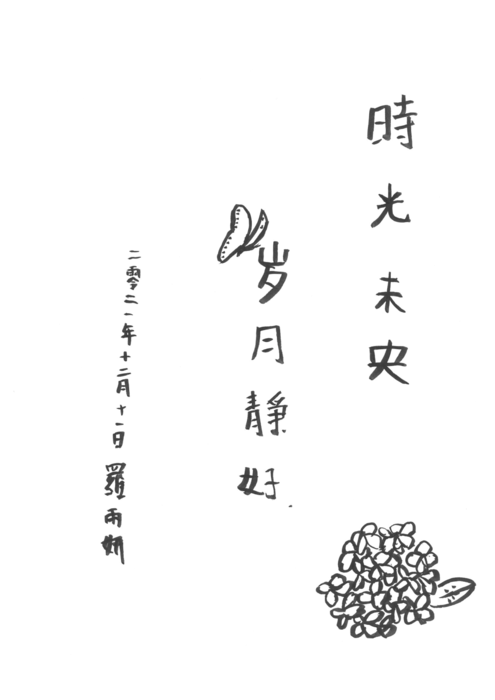 時光未央
岁月靜好
二零二一年十二月十一日羅雨妍